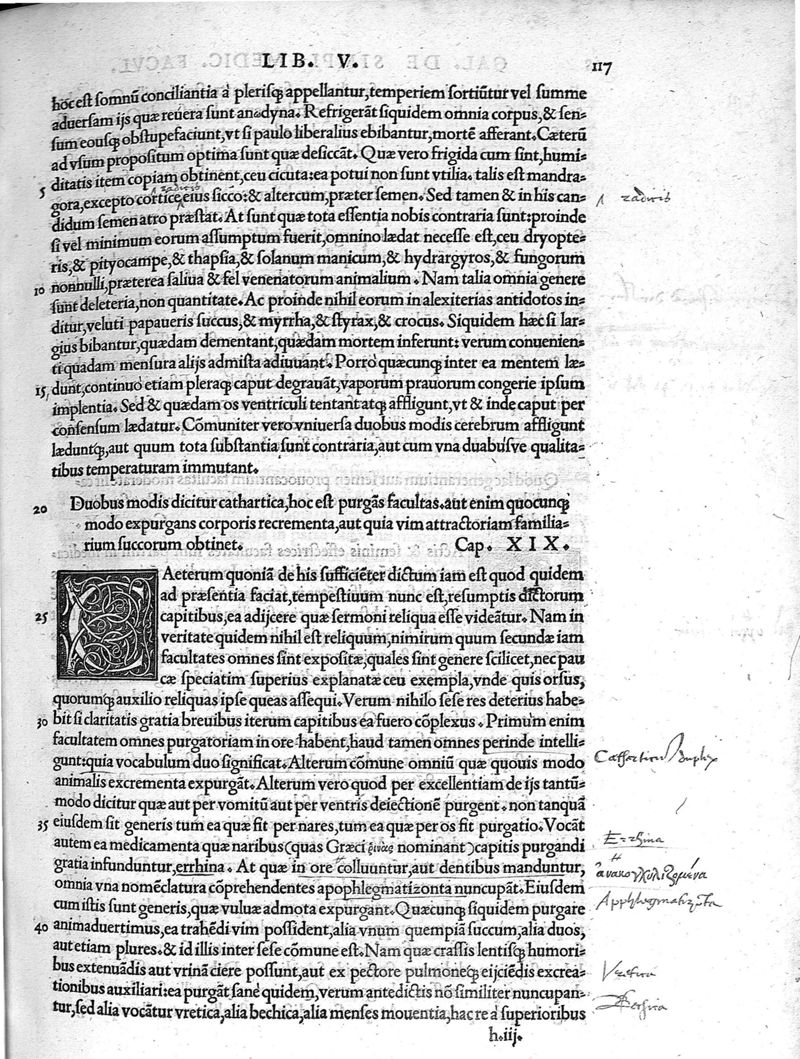 LIB. V. 117
hoc est somnũ conciliantia à plerisq; appellantur, temperiem sortiũtur vel summe
aduersam ijs quæ reuera sunt anodyna. Refrigerãt siquidem omnia corpus, & sen-
sum eousq; obstupefaciunt, vt si paulo liberalius ebibantur, mortẽ afferant. Cæterũ
ad vsum propositum optima sunt quæ desiccãt. Quæ vero frigida cum sint, humi-
5 ditatis item copiam obtinent, ceu cicuta: ea potui non sunt vtilia. talis est mandra-
gora, excepto cortice, eius sicco: & altercum, præter semen. Sed tamen & in his can-
didum semen atro præstat. At sunt quæ tota essentia nobis contraria sunt: proinde
si vel minimum eorum assumptum fuerit, omnino lædat necesse est, ceu dryopte-
ris, & pityocampe, & thapsia, & solanum manicum, & hydrargyros, & fungorum
10 nonnulli, præterea saliua & fel venenatorum animalium. Nam talia omnia genere
sunt deleteria, non quantitate. Ac proinde nihil eorum in alexiterias antidotos in-
ditur, veluti papaueris succus, & myrrha, & styrax, & crocus. Siquidem hæc si lar-
gius bibantur, quædam dementant, quædam mortem inferunt: verum conuenien-
ti quadam mensura alijs admista adiuuant. Porro quæcunq; inter ea mentem læ-
15 dunt, continuo etiam pleraq; caput degrauãt, vaporum prauorum congerie ipsum
implentia. Sed & quædam os ventriculi tentant atq; affligunt, vt & inde caput per
consensum lædatur. Cõmuniter vero vniuersa duobus modis cerebrum affligunt
læduntq;, aut quum tota substantia sunt contraria, aut cum vna duabusve qualita-
tibus temperaturam immutant.
20 Duobus modis dicitur cathartica, hoc est purgãs facultas. aut enim quocunq;
modo expurgans corporis recrementa, aut quia vim attractoriam familia-
rium succorum obtinet. Cap. XIX.
CAeterum quoniã de his sufficiẽter dictum iam est quod quidem
ad præsentia faciat, tempestiuum nunc est, resumptis dictorum
25 capitibus, ea adijcere quæ sermoni reliqua esse videãtur. Nam in
veritate quidem nihil est reliquum, nimirum quum secundæ iam
facultates omnes sint expositæ, quales sint genere scilicet, nec pau
cæ speciatim superius explanatæ ceu exempla, vnde quis orsus,
quorumq; auxilio reliquas ipse queas assequi. Verum nihilo sese res deterius habe-
30 bit si claritatis gratia breuibus iterum capitibus ea fuero cõplexus. Primum enim
facultatem omnes purgatoriam in ore habent, haud tamen omnes perinde intelli-
gunt: quia vocabulum duo significat. Alterum cõmune omniũ quæ quouis modo
animalis excrementa expurgãt. Alterum vero quod per excellentiam de ijs tantũ-
modo dicitur quæ aut per vomitũ aut per ventris deiectionẽ purgent. non tanquã
35 eiusdem sit generis tum ea quæ fit per nares, tum ea quæ per os fit purgatio. Vocãt
autem ea medicamenta quæ naribus (quas Græci ῥῖνας nominant) capitis purgandi
gratia infunduntur, errhina. At quæ in ore colluuntur, aut dentibus manduntur,
omnia vna nomẽclatura cõprehendentes apophlegmatizonta nuncupãt. Eiusdem
cum istis sunt generis, quæ vuluæ admota expurgant. Quæcunq; siquidem purgare
40 animaduertimus, ea trahẽdi vim possident, alia vnum quempiã succum, alia duos,
aut etiam plures. & id illis inter sese cõmune est. Nam quæ crassis lentisq; humori-
bus extenuãdis aut vrinã ciere possunt, aut ex pectore pulmoneq; eijciẽdis excrea-
tionibus auxiliari: ea purgãt sanè quidem, verum antedictis nõ similiter nuncupan-
tur, sed alia vocãtur vretica, alia bechica, alia menses mouentia, hac re à superioribus
h.iij.